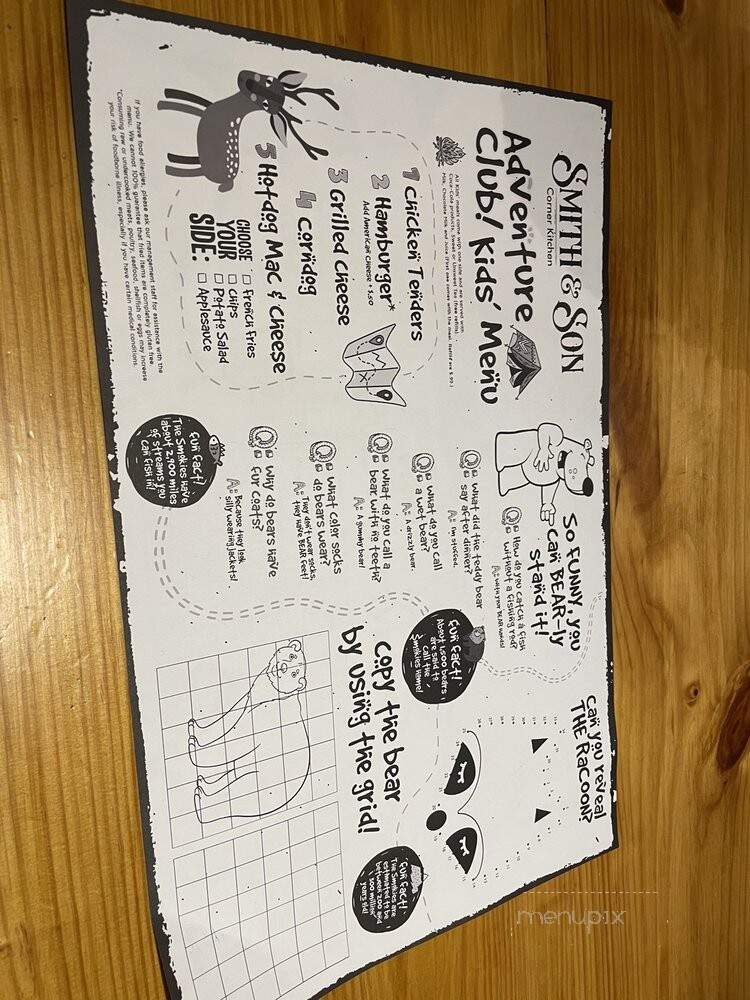 SMITH & SON
Corner Kitchen
Adventure
Club! Kids' Menu
All Kids' meals come with one side and are served with
Coca-Cola products, Sweet or Unsweet Tea (free refills),
Milk, Chocolate Milk and Juice (First one comes with the meal. Refills are $.99.)
1 Chicken Tenders
2 Hamburger*
Add American Cheese +1.50
3 Grilled Cheese
4 Corndog
5 Hotdog Mac & Cheese
CHOOSE
YOUR
SIDE:
French Fries
Chips
Potato Salad
Applesauce
If you have food allergies, please ask our management staff for assistance with the
menu. We cannot 100% guarantee that fried items are completely gluten free.
*Consuming raw or undercooked meats, poultry, seafood, shellfish or eggs may increase
your risk of foodborne illness, especially if you have certain medical conditions.
So FUNNY, you
can BEAR-ly
stand it!
Q: How do you catch a fish
without a fishing rod?
A: With your BEAR hands!
Q: What did the teddy bear
say after dinner?
A: I'm stuffed.
Q: What do you call
a wet bear?
A: A drizzly bear.
Q: What do you call a
bear with no teeth?
A: A gummy bear!
Q: What color socks
do bears wear?
A: They don't wear socks,
they have BEAR feet!
Q: Why do bears have
fur coats?
A: Because they look
silly wearing jackets!
Fun Fact!
The Smokies have
about 2,900 miles
of streams you
can fish in!
Fun Fact!
About 1,500 bears
are said to
call the
Smokies home!
Can you reveal
THE RaCOON?
Copy the bear
by using the grid!
Fun Fact!
The Smokies are
estimated to be
between 200 and
300 million
years old!
menupix